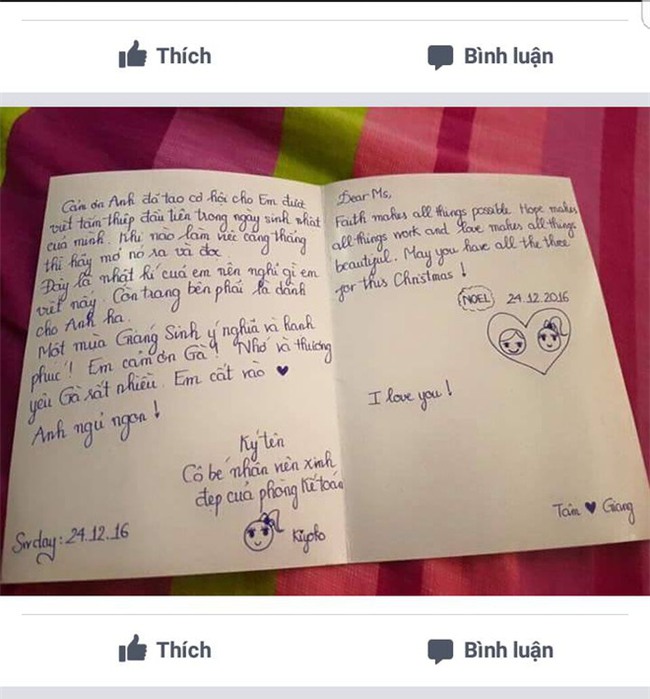 Thích Bình luận
Cảm ơn Anh đã tạo cơ hội cho Em được
viết tấm thiệp đầu tiên trong ngày sinh nhật
của mình. Khi nào làm việc căng thẳng
thì hãy mở nó ra và đọc
Đây là nhật kí của em nên nghĩ gì em
viết nấy. Còn trang bên phải là dành
cho Anh ha.
Một mùa Giáng Sinh ý nghĩa và hạnh
phúc! Em cảm ơn Gà! Nhớ và thương
yêu Gà rất nhiều. Em cất vào ♥
Anh ngủ ngon!
Ký tên
Cô bé nhân viên xinh
đẹp của phòng kế toán
Kiyoko
Sunday: 24.12.16
Dear Ms,
Faith makes all things possible. Hope makes
all things work and love makes all things
beautiful. May you have all the three
for this Christmas!
NOEL 24.12.2016
I love you!
Tâm ♥ Giang
Thích Bình luận